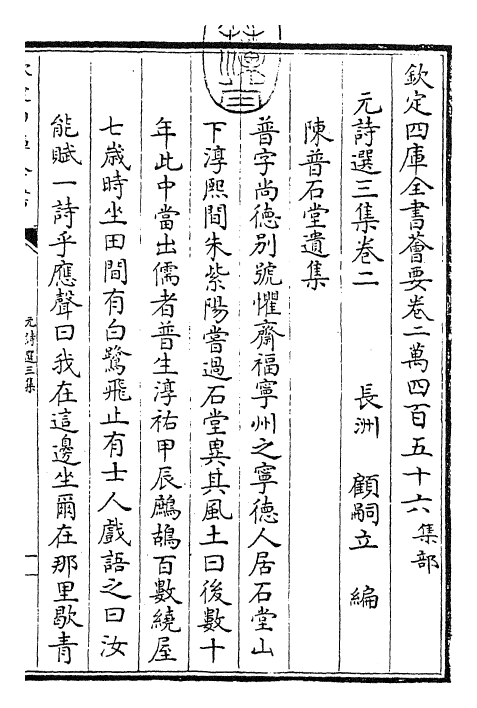 欽定四庫全書薈要卷二萬四百五十六集部
元詩選三集卷二 長洲 顧嗣立 編
陳普石堂遺集
普字尚德別號懼齋福寧州之寧德人居石堂山
下淳熙間朱紫陽嘗過石堂異其風土曰後數十
年此中當出儒者普生淳祐甲辰鷓鴣百數繞屋
七歲時坐田間有白鷺飛止有士人戲語之曰汝
能賦一詩乎應聲曰我在這邊坐爾在那里歇青
元詩選三集